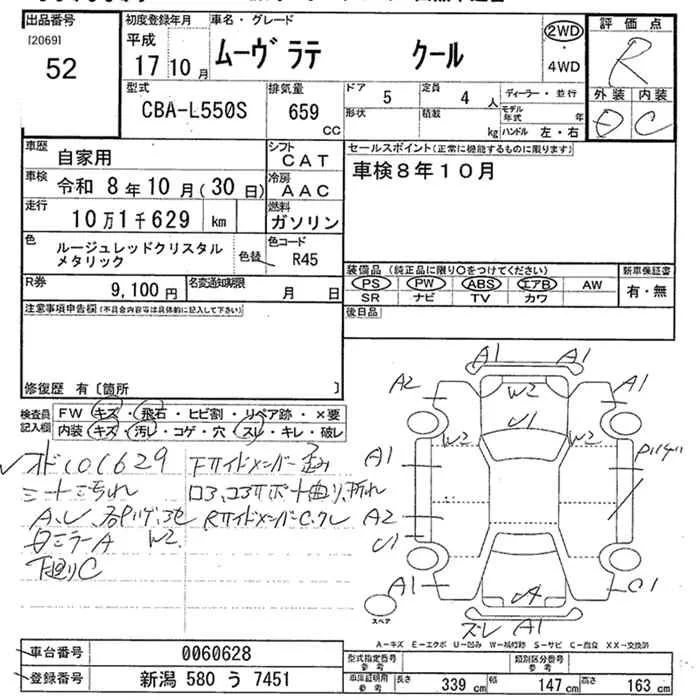 出品番号
[2069]
52
初度登録年月
平成
17 10 月
車名・グレード
ムーヴ ラテ クール
2WD
4WD
評価点
R
外装 内装
E C
型式
CBA-L550S
排気量
659 CC
ドア 5
定員 4 人
形状
積載 kg
ディーラー・並行
モデル年式 年
ハンドル 左・右
車歴
自家用
シフト
CAT
車検
令和 8 年 10 月 ( 30 日 )
冷房
AAC
走行
10 万 1 千 629 km
燃料
ガソリン
色
ルージュレッドクリスタル
メタリック
色替
色コード
R45
R券
9,100 円
名変通知期限
月 日
セールスポイント(正常に機能するものに限ります)
車検8年10月
装備品 (純正品に限り○をつけてください)
PS PW ABS エアB AW
SR ナビ TV カワ
新車保証書
有・無
後日品
注意事項申告欄(不具合内容等は具体的に記入して下さい)
修復歴 有〔箇所 〕
検査員
記入欄
FW キズ・飛石・ヒビ割・リペア跡・×要
内装 キズ・汚レ・コゲ・穴・スレ・キレ・破レ
シート汚れ
下廻りC
A1 A1
A2 W2 A1
U1
W2 W2
A1
A2
U1
A1 C1
ズレ A1
スペア
A-キズ E-エクボ U-凹み W-補修跡 S-サビ C-腐食 XX-交換済
車台番号 0060628
登録番号 新潟 580 う 7451
型式指定番号
参考
類別区分番号
参考
車庫証明用
参考
長さ 339 cm
幅 147 cm
高さ 163 cm